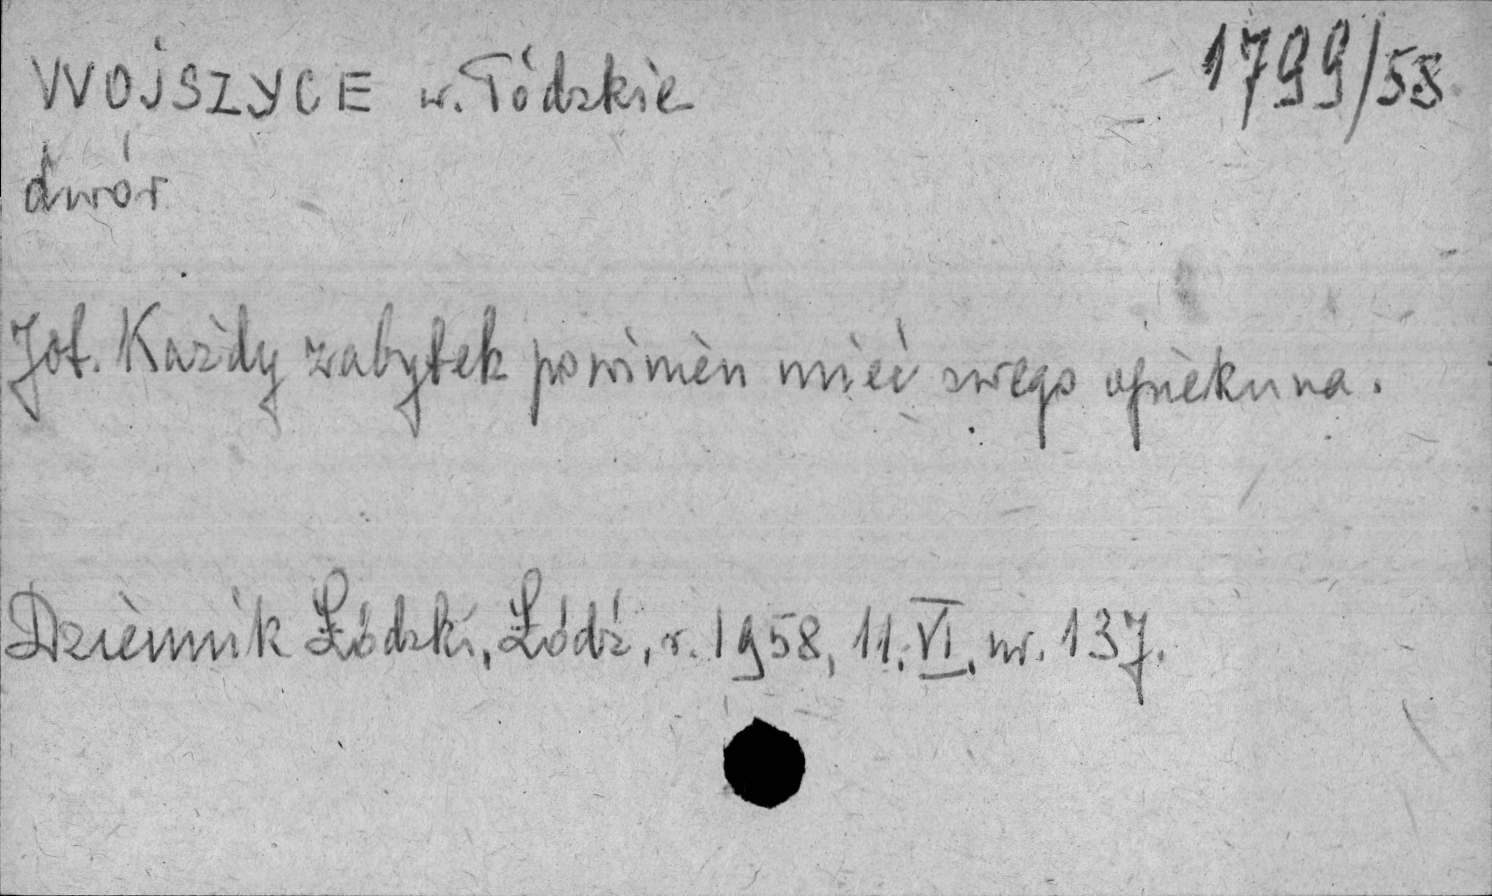 WOJSZYCE w. Łódzkie 1799/58
dwór
Jot. Każdy zabytek powinien mieć swego opiekuna.
Dziennik Łódzki, Łódź, r. 1958, 11. VI. nr. 137.